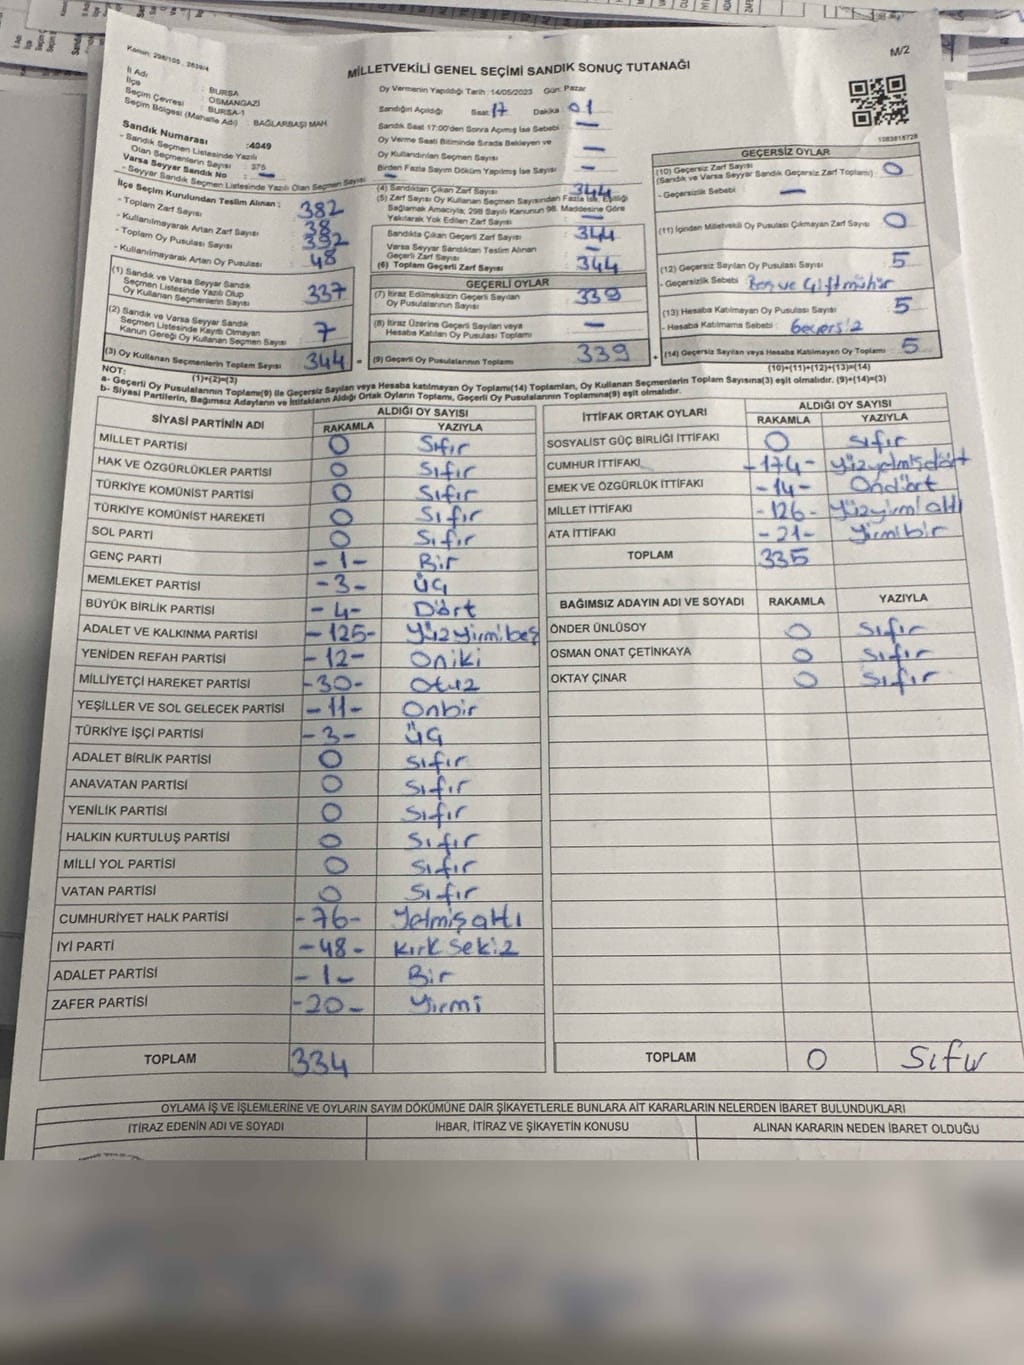 Kanun: 298/105 , 2839/4
M/2
MİLLETVEKİLİ GENEL SEÇİMİ SANDIK SONUÇ TUTANAĞI
İl Adı : BURSA
İlçe : OSMANGAZİ
Seçim Çevresi : BURSA-1
Seçim Bölgesi (Mahalle Adı) : BAĞLARBAŞI MAH.
Sandık Numarası :4049
- Sandık Seçmen Listesinde Yazılı Olan Seçmenlerin Sayısı : 375
Varsa Seyyar Sandık No : —
- Seyyar Sandık Seçmen Listesinde Yazılı Olan Seçmen Sayısı : —
İlçe Seçim Kurulundan Teslim Alınan :
- Toplam Zarf Sayısı : 382
- Kullanılmayarak Artan Zarf Sayısı : 38
- Toplam Oy Pusulası Sayısı : 392
- Kullanılmayarak Artan Oy Pusulası : 48
(1) Sandık ve Varsa Seyyar Sandık
Seçmen Listesinde Yazılı Olup
Oy Kullanan Seçmenlerin Sayısı : 337
(2) Sandık ve Varsa Seyyar Sandık
Seçmen Listesinde Kayıtlı Olmayan
Kanun Gereği Oy Kullanan Seçmen Sayısı : 7
(3) Oy Kullanan Seçmenlerin Toplam Sayısı : 344
(1)+(2)=(3)
Oy Vermenin Yapıldığı Tarih :14/05/2023 Gün: Pazar
Sandığın Açıldığı Saat: 17 Dakika : 01
Sandık Saat 17:00'den Sonra Açılmış İse Sebebi : —
Oy Verme Saati Bitiminde Sırada Bekleyen ve
Oy Kullandırılan Seçmen Sayısı : —
Birden Fazla Sayım Döküm Yapılmış İse Sayısı : —
(4) Sandıktan Çıkan Zarf Sayısı : 344
(5) Zarf Sayısı Oy Kullanan Seçmen Sayısından Fazla İse, Eşitliği
Sağlamak Amacıyla, 298 Sayılı Kanunun 98. Maddesine Göre
Yakılarak Yok Edilen Zarf Sayısı : —
Sandıkta Çıkan Geçerli Zarf Sayısı : 344
Varsa Seyyar Sandıktan Teslim Alınan
Geçerli Zarf Sayısı : —
(6) Toplam Geçerli Zarf Sayısı : 344
GEÇERLİ OYLAR
(7) İtiraz Edilmeksizin Geçerli Sayılan
Oy Pusulalarının Sayısı : 339
(8) İtiraz Üzerine Geçerli Sayılan veya
Hesaba Katılan Oy Pusulası Toplamı : —
(9) Geçerli Oy Pusulalarının Toplamı : 339
1083818728
GEÇERSİZ OYLAR
(10) Geçersiz Zarf Sayısı
(Sandık ve Varsa Seyyar Sandık Geçersiz Zarf Toplamı) : 0
- Geçersizlik Sebebi : —
(11) İçinden Milletvekili Oy Pusulası Çıkmayan Zarf Sayısı : 0
(12) Geçersiz Sayılan Oy Pusulası Sayısı : 5
- Geçersizlik Sebebi : Boş ve Çiftmühür
(13) Hesaba Katılmayan Oy Pusulası Sayısı : 5
- Hesaba Katılmama Sebebi : Geçersiz
(14) Geçersiz Sayılan veya Hesaba Katılmayan Oy Toplamı : 5
(10)+(11)+(12)+(13)=(14)
NOT:
a- Geçerli Oy Pusulalarının Toplamı(9) ile Geçersiz Sayılan veya Hesaba katılmayan Oy Toplamı(14) Toplamları, Oy Kullanan Seçmenlerin Toplam Sayısına(3) eşit olmalıdır. (9)+(14)=(3)
b- Siyasi Partilerin, Bağımsız Adayların ve İttifakların Aldığı Ortak Oyların Toplamı, Geçerli Oy Pusulalarının Toplamına(9) eşit olmalıdır.
SİYASİ PARTİNİN ADI ALDIĞI OY SAYISI
RAKAMLA YAZIYLA
MİLLET PARTİSİ 0 Sıfır
HAK VE ÖZGÜRLÜKLER PARTİSİ 0 Sıfır
TÜRKİYE KOMÜNİST PARTİSİ 0 Sıfır
TÜRKİYE KOMÜNİST HAREKETİ 0 Sıfır
SOL PARTİ 0 Sıfır
GENÇ PARTİ -1- Bir
MEMLEKET PARTİSİ -3- üç
BÜYÜK BİRLİK PARTİSİ -4- Dört
ADALET VE KALKINMA PARTİSİ -125- yüzyirmibeş
YENİDEN REFAH PARTİSİ -12- Oniki
MİLLİYETÇİ HAREKET PARTİSİ -30- Otuz
YEŞİLLER VE SOL GELECEK PARTİSİ -11- Onbir
TÜRKİYE İŞÇİ PARTİSİ -3- üç
ADALET BİRLİK PARTİSİ 0 Sıfır
ANAVATAN PARTİSİ 0 Sıfır
YENİLİK PARTİSİ 0 Sıfır
HALKIN KURTULUŞ PARTİSİ 0 Sıfır
MİLLİ YOL PARTİSİ 0 Sıfır
VATAN PARTİSİ 0 Sıfır
CUMHURİYET HALK PARTİSİ -76- Yetmişaltı
İYİ PARTİ -48- Kırk sekiz
ADALET PARTİSİ -1- Bir
ZAFER PARTİSİ -20- Yirmi
TOPLAM 334
İTTİFAK ORTAK OYLARI ALDIĞI OY SAYISI
RAKAMLA YAZIYLA
SOSYALİST GÜÇ BİRLİĞİ İTTİFAKI 0 Sıfır
CUMHUR İTTİFAKI -174- Yüzyetmişdört
EMEK VE ÖZGÜRLÜK İTTİFAKI -14- Ondört
MİLLET İTTİFAKI -126- Yüzyirmialtı
ATA İTTİFAKI -21- Yirmibir
TOPLAM 335
BAĞIMSIZ ADAYIN ADI VE SOYADI RAKAMLA YAZIYLA
ÖNDER ÜNLÜSOY 0 Sıfır
OSMAN ONAT ÇETİNKAYA 0 Sıfır
OKTAY ÇINAR 0 Sıfır
TOPLAM 0 Sıfır
OYLAMA İŞ VE İŞLEMLERİNE VE OYLARIN SAYIM DÖKÜMÜNE DAİR ŞİKAYETLERLE BUNLARA AİT KARARLARIN NELERDEN İBARET BULUNDUKLARI
İTİRAZ EDENİN ADI VE SOYADI İHBAR, İTİRAZ VE ŞİKAYETİN KONUSU ALINAN KARARIN NEDEN İBARET OLDUĞU